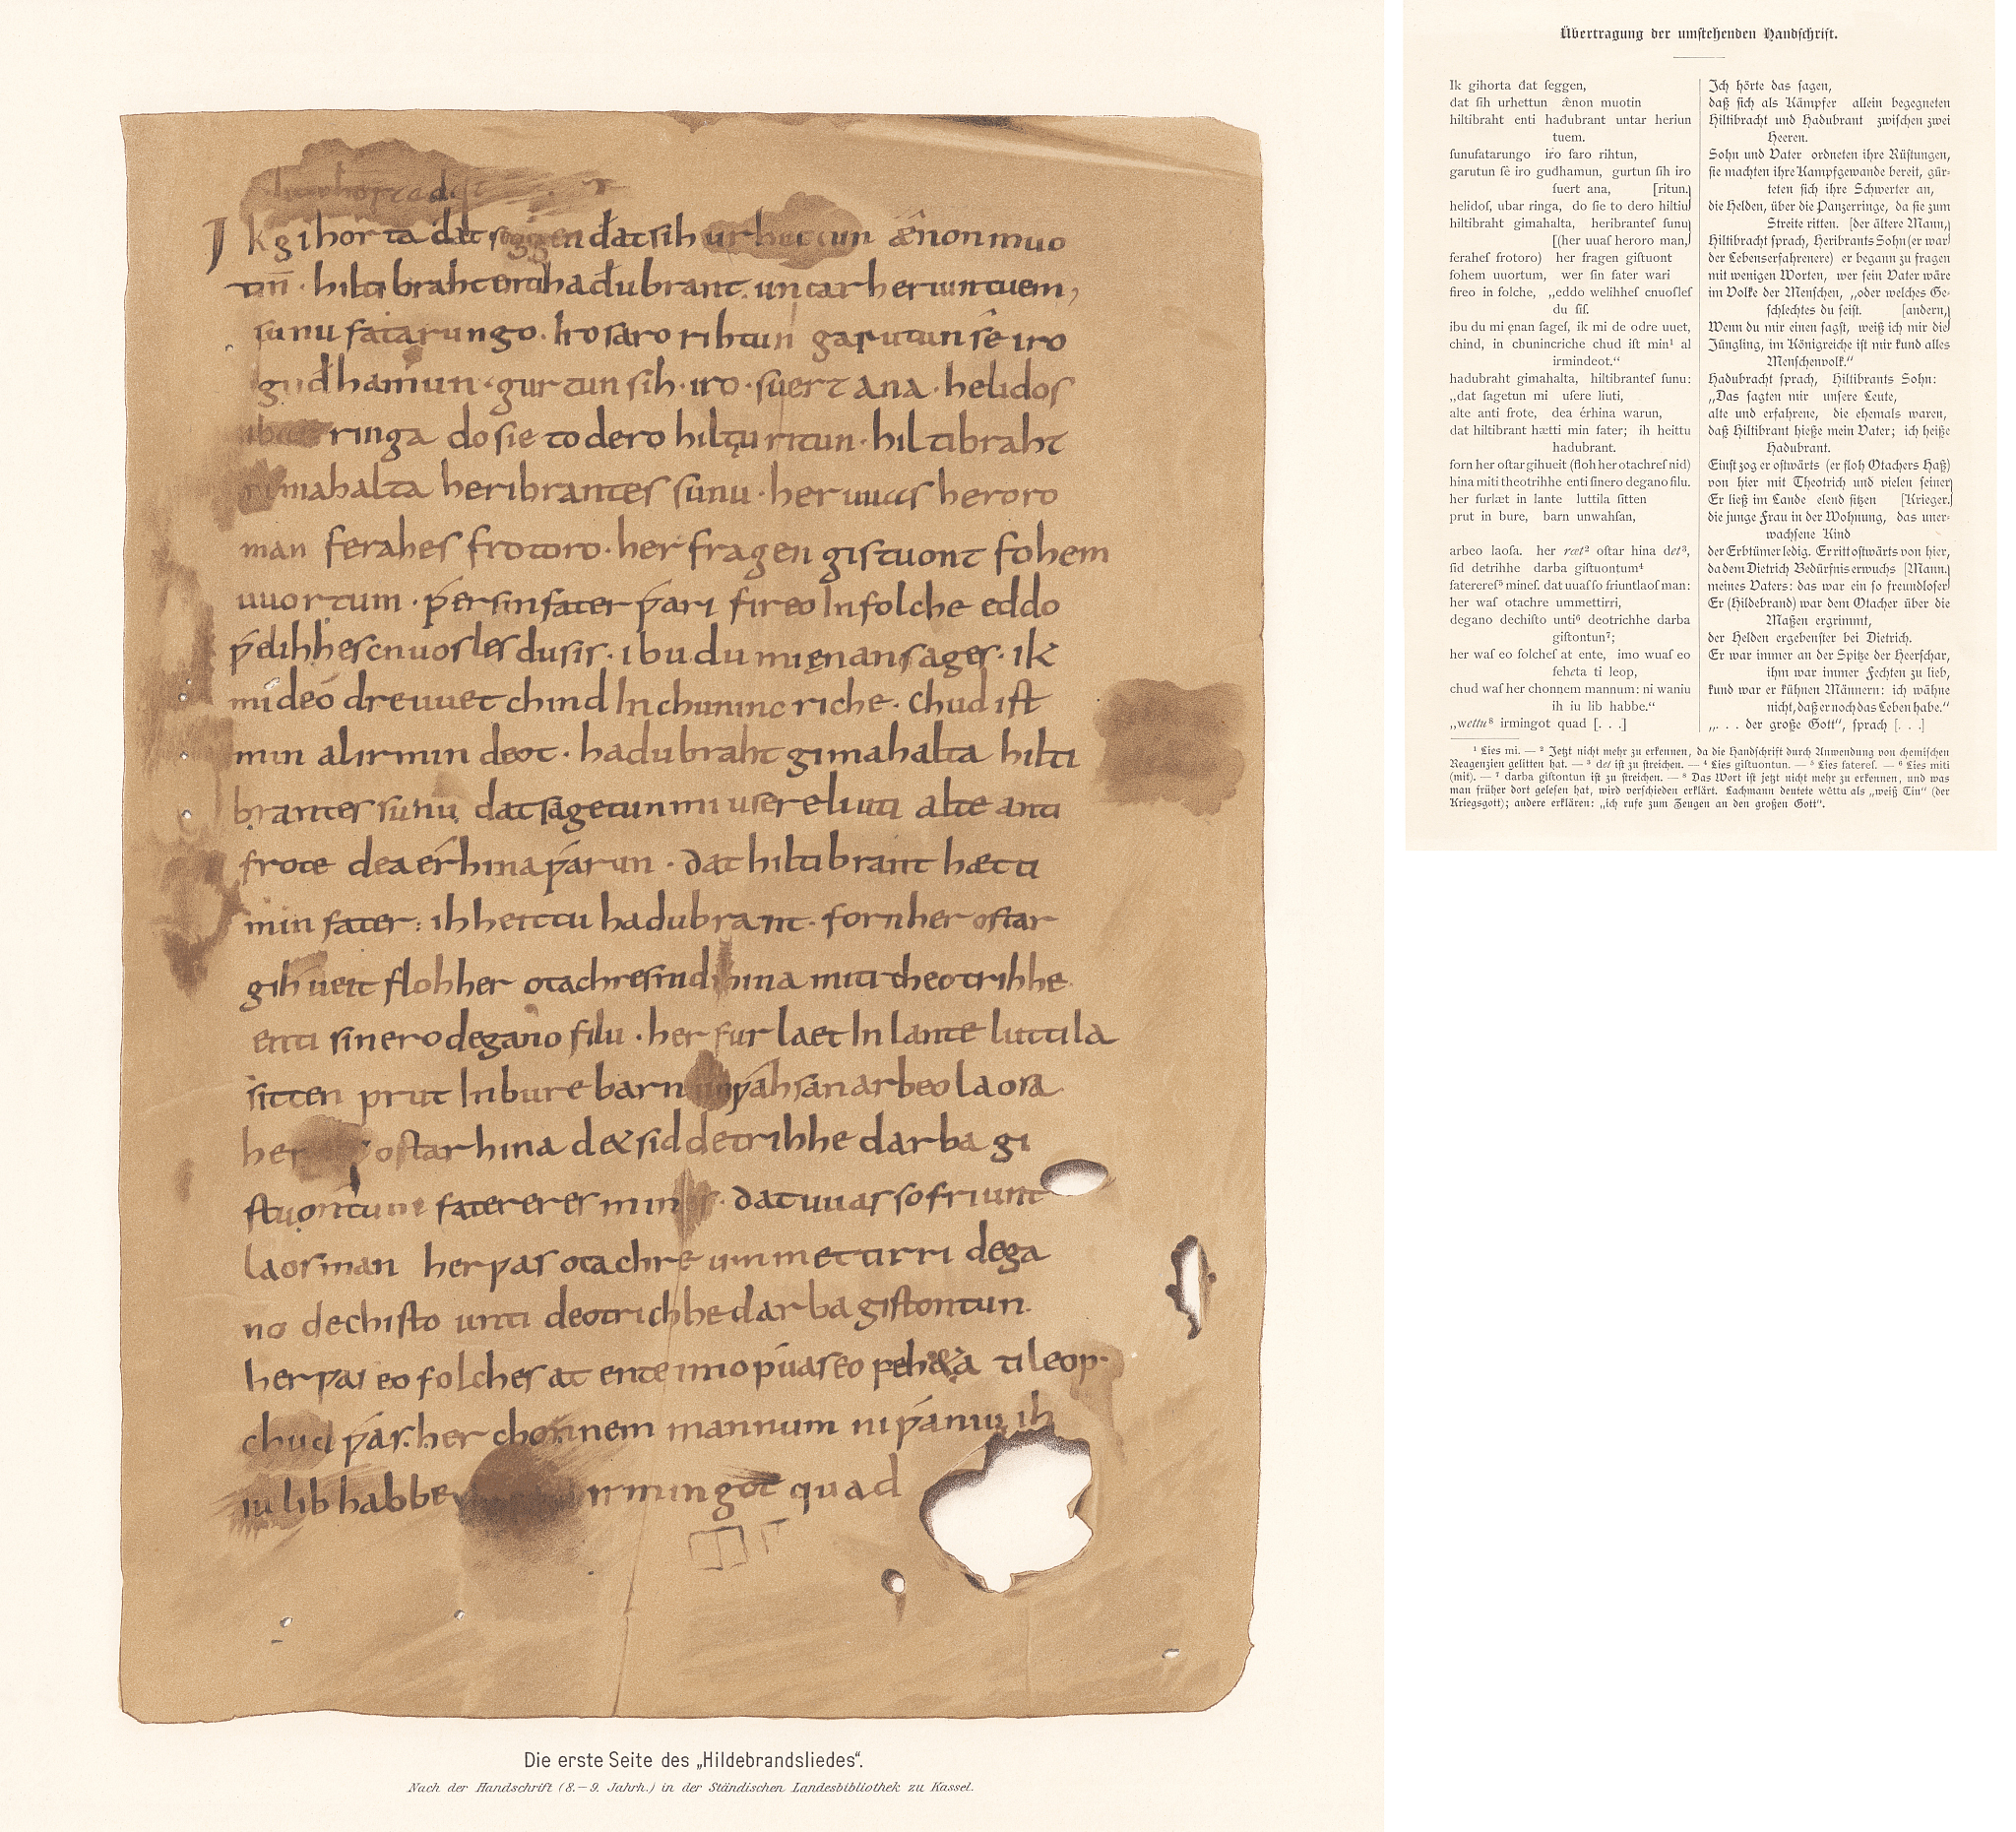 Ik gihorta dat seggen dat sih urhettun ænon muo
tin · hiltibraht enti hadubrant · untar heriun tuem,
sunu fatarungo · Iro saro rihtun garutun sê iro
gudhamun · gurtun sih · iro · suert ana · helidos
ringa do sie to dero hiltiu ritun · hiltibraht
gimahalta heribrantes sunu · her uuas heroro
man ferahes frotoro · her fragen gistuont fohem
uuortum · ƿer sin fater ƿari fireo In folche eddo
ƿelihhes cnuosles du sis · ibu du mi ęnan sages · ik
mi deo dre uuet chind In chuninc riche · chud ist
min al irmin deot · hadubraht gimahalta hilti
brantes sunu dat sagetun mi usere liuti alte anti
frote dea érhina ƿarun · dat hiltibrant hætti
min fater: ih heittu hadubrant · forn her ostar
gihueit floh her otachres nid hina miti theotrihhe
enti sinero degano filu · her furlaet In lante luttila
sitten prut In bure barn unƿahsan arbeo laosa
her ostar hina det sid detrihhe darba gi
stuontum fatereres mines · dat uuas so friunt
laos man her ƿas otachre ummettirri dega
no dechisto unti deotrichhe darba gistontun
her ƿas eo folches at ente imo ƿuas eo feheta ti leop ·
chud ƿas her chonnem mannum ni ƿaniu ih
iu lib habbe irmingot quad
Die erste Seite des „Hildebrandsliedes“.
Nach der Handschrift (8.–9. Jahrh.) in der Ständischen Landesbibliothek zu Kassel.
Übertragung der umſtehenden Handſchrift.
Ik gihorta dat ſeggen,
dat ſih urhettun ænon muotin
hiltibraht enti hadubrant untar heriun
tuem.
ſunufatarungo iro ſaro rihtun,
garutun ſê iro gudhamun, gurtun ſih iro
ſuert ana, [ritun.]
helidoſ, ubar ringa, do ſie to dero hiltiu
hiltibraht gimahalta, heribranteſ ſunu
[(her uuaſ heroro man,]
feraheſ frotoro) her fragen giſtuont
fohem uuortum, wer ſin fater wari
fireo in folche, „eddo welihheſ cnuoſleſ
du ſiſ.
ibu du mi ęnan ſageſ, ik mi de odre uuet,
chind, in chunincriche chud iſt min¹ al
irmindeot.“
hadubraht gimahalta, hiltibranteſ ſunu:
„dat ſagetun mi uſere liuti,
alte anti frote, dea érhina warun,
dat hiltibrant hætti min fater; ih heittu
hadubrant.
forn her oſtar gihueit (floh her otachreſ nid)
hina miti theotrihhe enti ſinero degano filu.
her furlæt in lante luttila ſitten
prut in bure, barn unwahſan,
arbeo laoſa. her ræt² oſtar hina det³,
ſid detrihhe darba giſtuontum⁴
faterereſ⁵ mineſ. dat uuaſ ſo friuntlaoſ man:
her waſ otachre ummettirri,
degano dechiſto unti⁶ deotrichhe darba
giſtontun⁷;
her waſ eo folcheſ at ente, imo wuaſ eo
feheta ti leop,
chud waſ her chonnem mannum: ni waniu
ih iu lib habbe.“
„wettu⁸ irmingot quad [. . .]
Ich hörte das ſagen,
daß ſich als Kämpfer allein begegneten
Hiltibracht und Hadubrant zwiſchen zwei
Heeren.
Sohn und Vater ordneten ihre Rüſtungen,
ſie machten ihre Kampfgewande bereit, gür-
teten ſich ihre Schwerter an,
die Helden, über die Panzerringe, da ſie zum
Streite ritten. [der ältere Mann,]
Hiltibracht ſprach, Heribrants Sohn (er war
der Lebenserfahrenere) er begann zu fragen
mit wenigen Worten, wer ſein Vater wäre
im Volke der Menſchen, „oder welches Ge-
ſchlechtes du ſeiſt. [andern,]
Wenn du mir einen ſagſt, weiß ich mir die
Jüngling, im Königreiche iſt mir kund alles
Menſchenvolk.“
Hadubracht ſprach, Hiltibrants Sohn:
„Das ſagten mir unſere Leute,
alte und erfahrene, die ehemals waren,
daß Hiltibrant hieße mein Vater; ich heiße
Hadubrant.
Einſt zog er oſtwärts (er floh Otachers Haß)
von hier mit Theotrich und vielen ſeiner
Er ließ im Lande elend ſitzen [Krieger.]
die junge Frau in der Wohnung, das uner-
wachſene Kind
der Erbtümer ledig. Er ritt oſtwärts von hier,
da dem Dietrich Bedürfnis erwuchs [Mann.]
meines Vaters: das war ein ſo freundloſer
Er (Hildebrand) war dem Otacher über die
Maßen ergrimmt,
der Helden ergebenſter bei Dietrich.
Er war immer an der Spitze der Heerſchar,
ihm war immer Fechten zu lieb,
kund war er kühnen Männern: ich wähne
nicht, daß er noch das Leben habe.“
„. . . der große Gott“, ſprach [. . .]
¹ Lies mi. — ² Jetzt nicht mehr zu erkennen, da die Handſchrift durch Anwendung von chemiſchen
Reagenzien gelitten hat. — ³ det iſt zu ſtreichen. — ⁴ Lies giſtuontun. — ⁵ Lies fatereſ. — ⁶ Lies miti
(mit). — ⁷ darba giſtontun iſt zu ſtreichen. — ⁸ Das Wort iſt jetzt nicht mehr zu erkennen, und was
man früher dort geleſen hat, wird verſchieden erklärt. Lachmann deutete wêttu als „weiß Tiu“ (der
Kriegsgott); andere erklären: „ich rufe zum Zeugen an den großen Gott“.